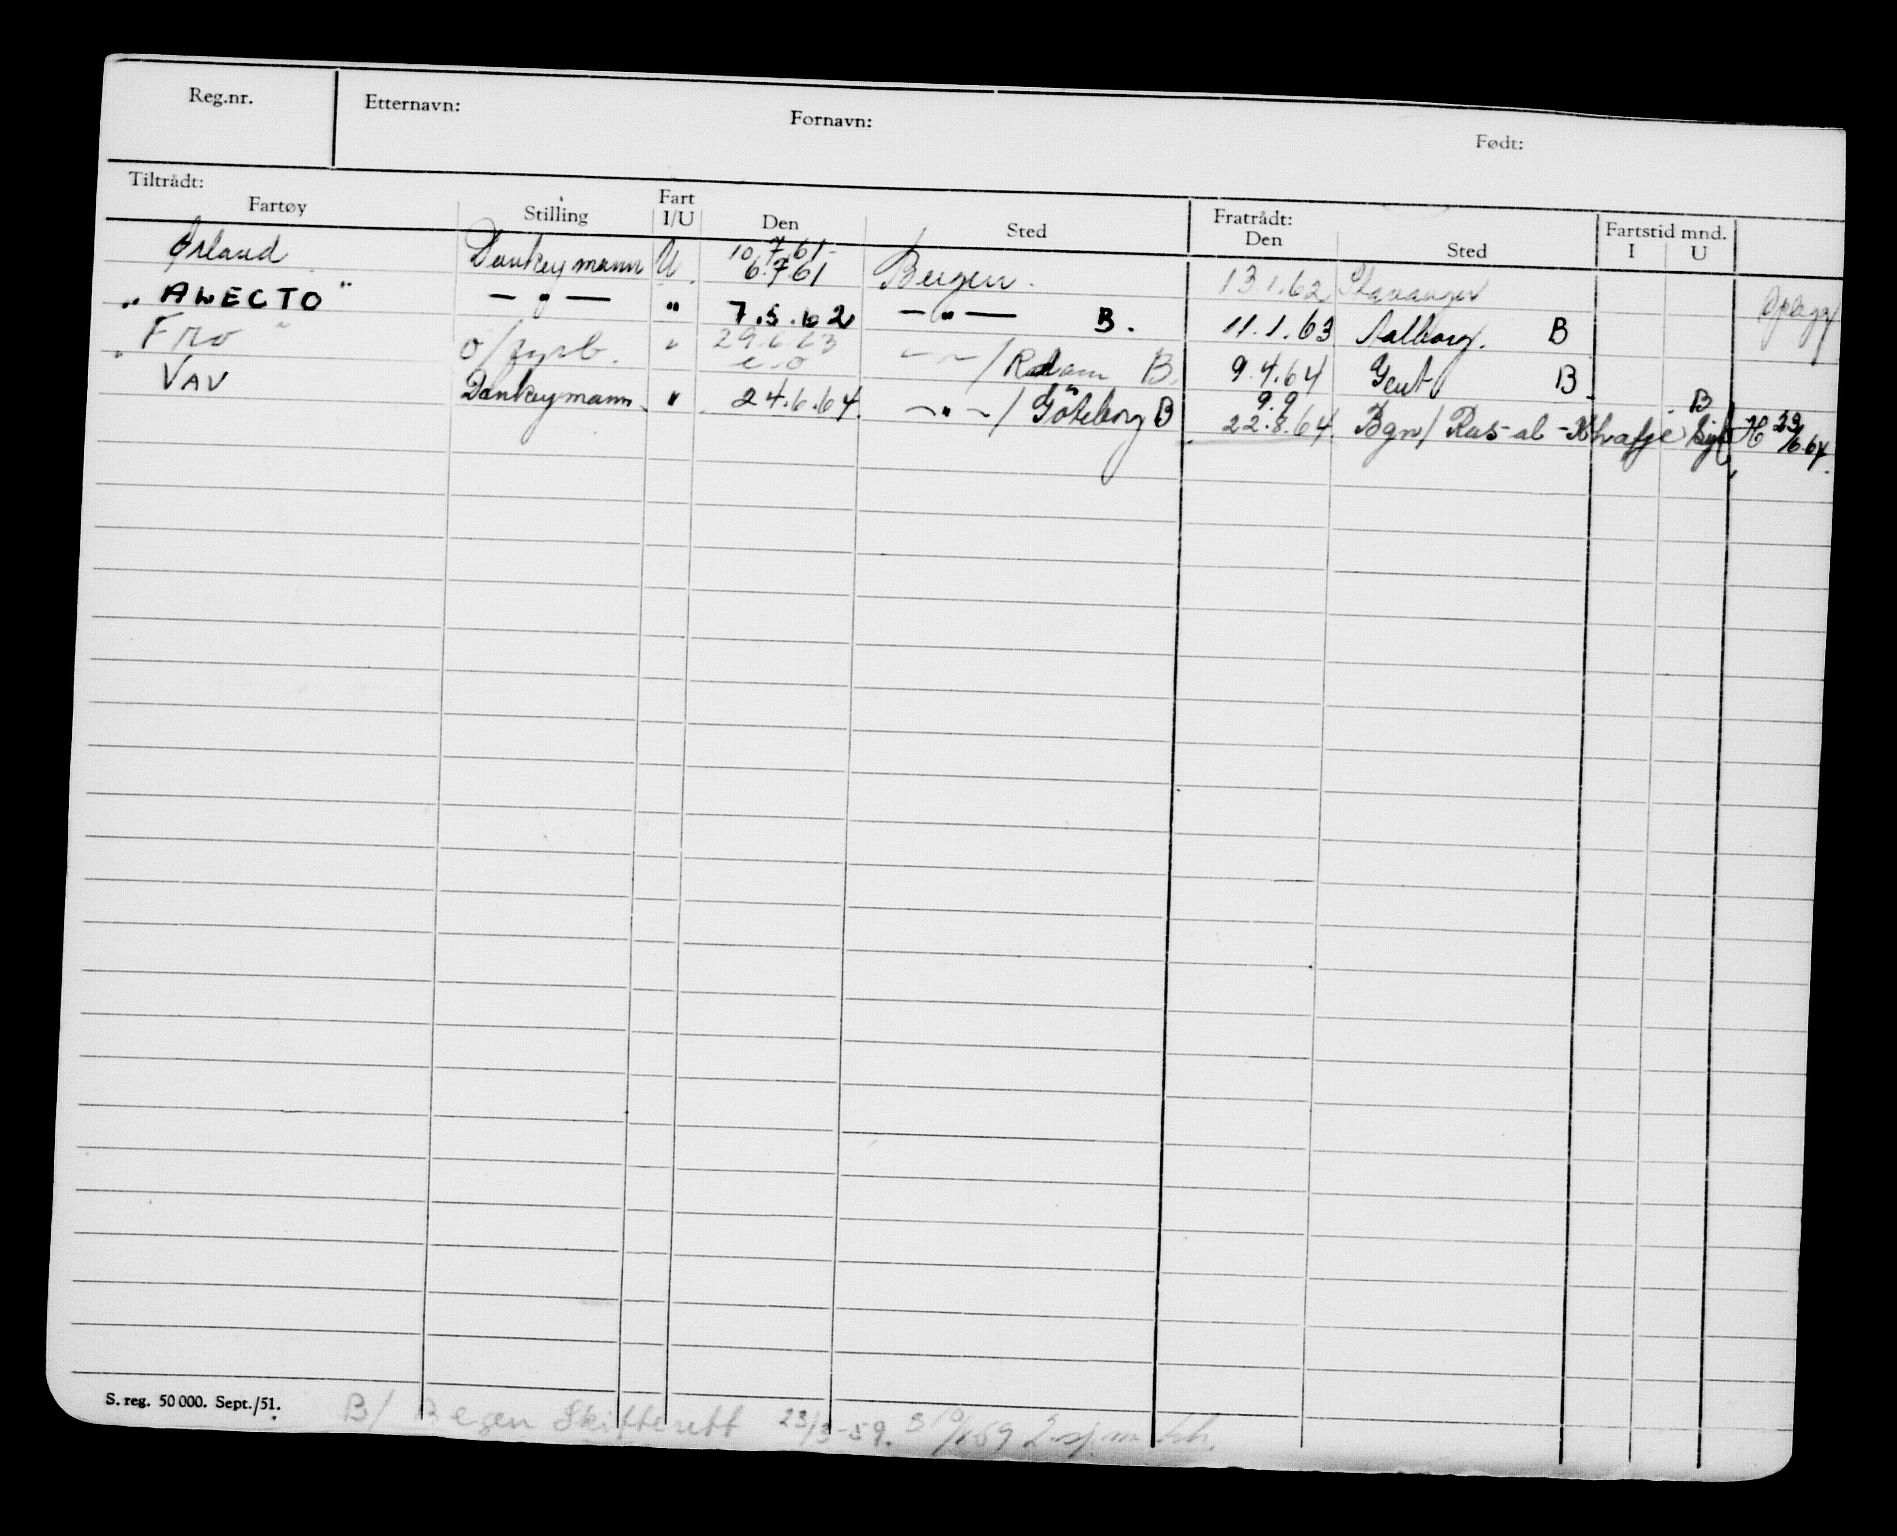 Reg.nr. Etternavn: Fornavn: Født:
Tiltrådt: Fratrådt: Fartstid mnd.
Fartøy Stilling Fart I/U Den Sted Den Sted I U
Ørland Donkeymann U 10.7.61 6.7.61 Bergen. 13 1.62 Stavanger Opl.
"ALECTO" — " — " 7.5.62 — " — B. 11.1.63 Aalborg. B
"Fro" o/fyrb. " — " — / Rdam B. 9.4.64 Gent B
" VAV Donkeymann " 24.6.64. — " — / Göteborg B 9.9 22.8.64. Bgn/ Ras-al-Khafje B 23/6.64.
S. reg. 50 000. Sept./51. B/ Bergen Skifterett 23/3-59.